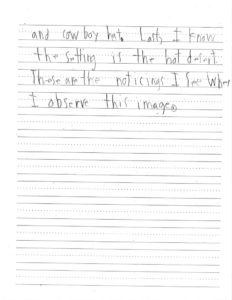 and cowboy hat. Last, I know
the setting is the hot desert.
These are the noticings I see when
I observe this image.